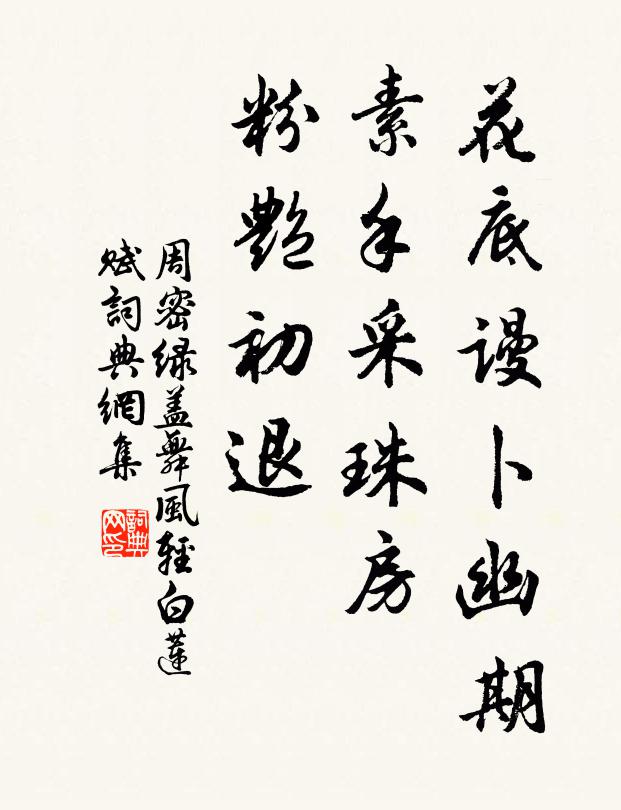 花底謾卜幽期
素手采珠房
粉艷初退
周密綠蓋舞風輕白蓮
賦詞典網集
詞典网印